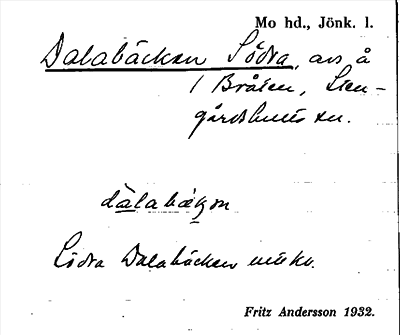 Mo hd., Jönk. l.
Dalabäcken Södra, avs å
i Bråten, Sten-
gårdshults sn.
dàlabäkɐn
Södra Dalabäcken unikv.
Fritz Andersson 1932.